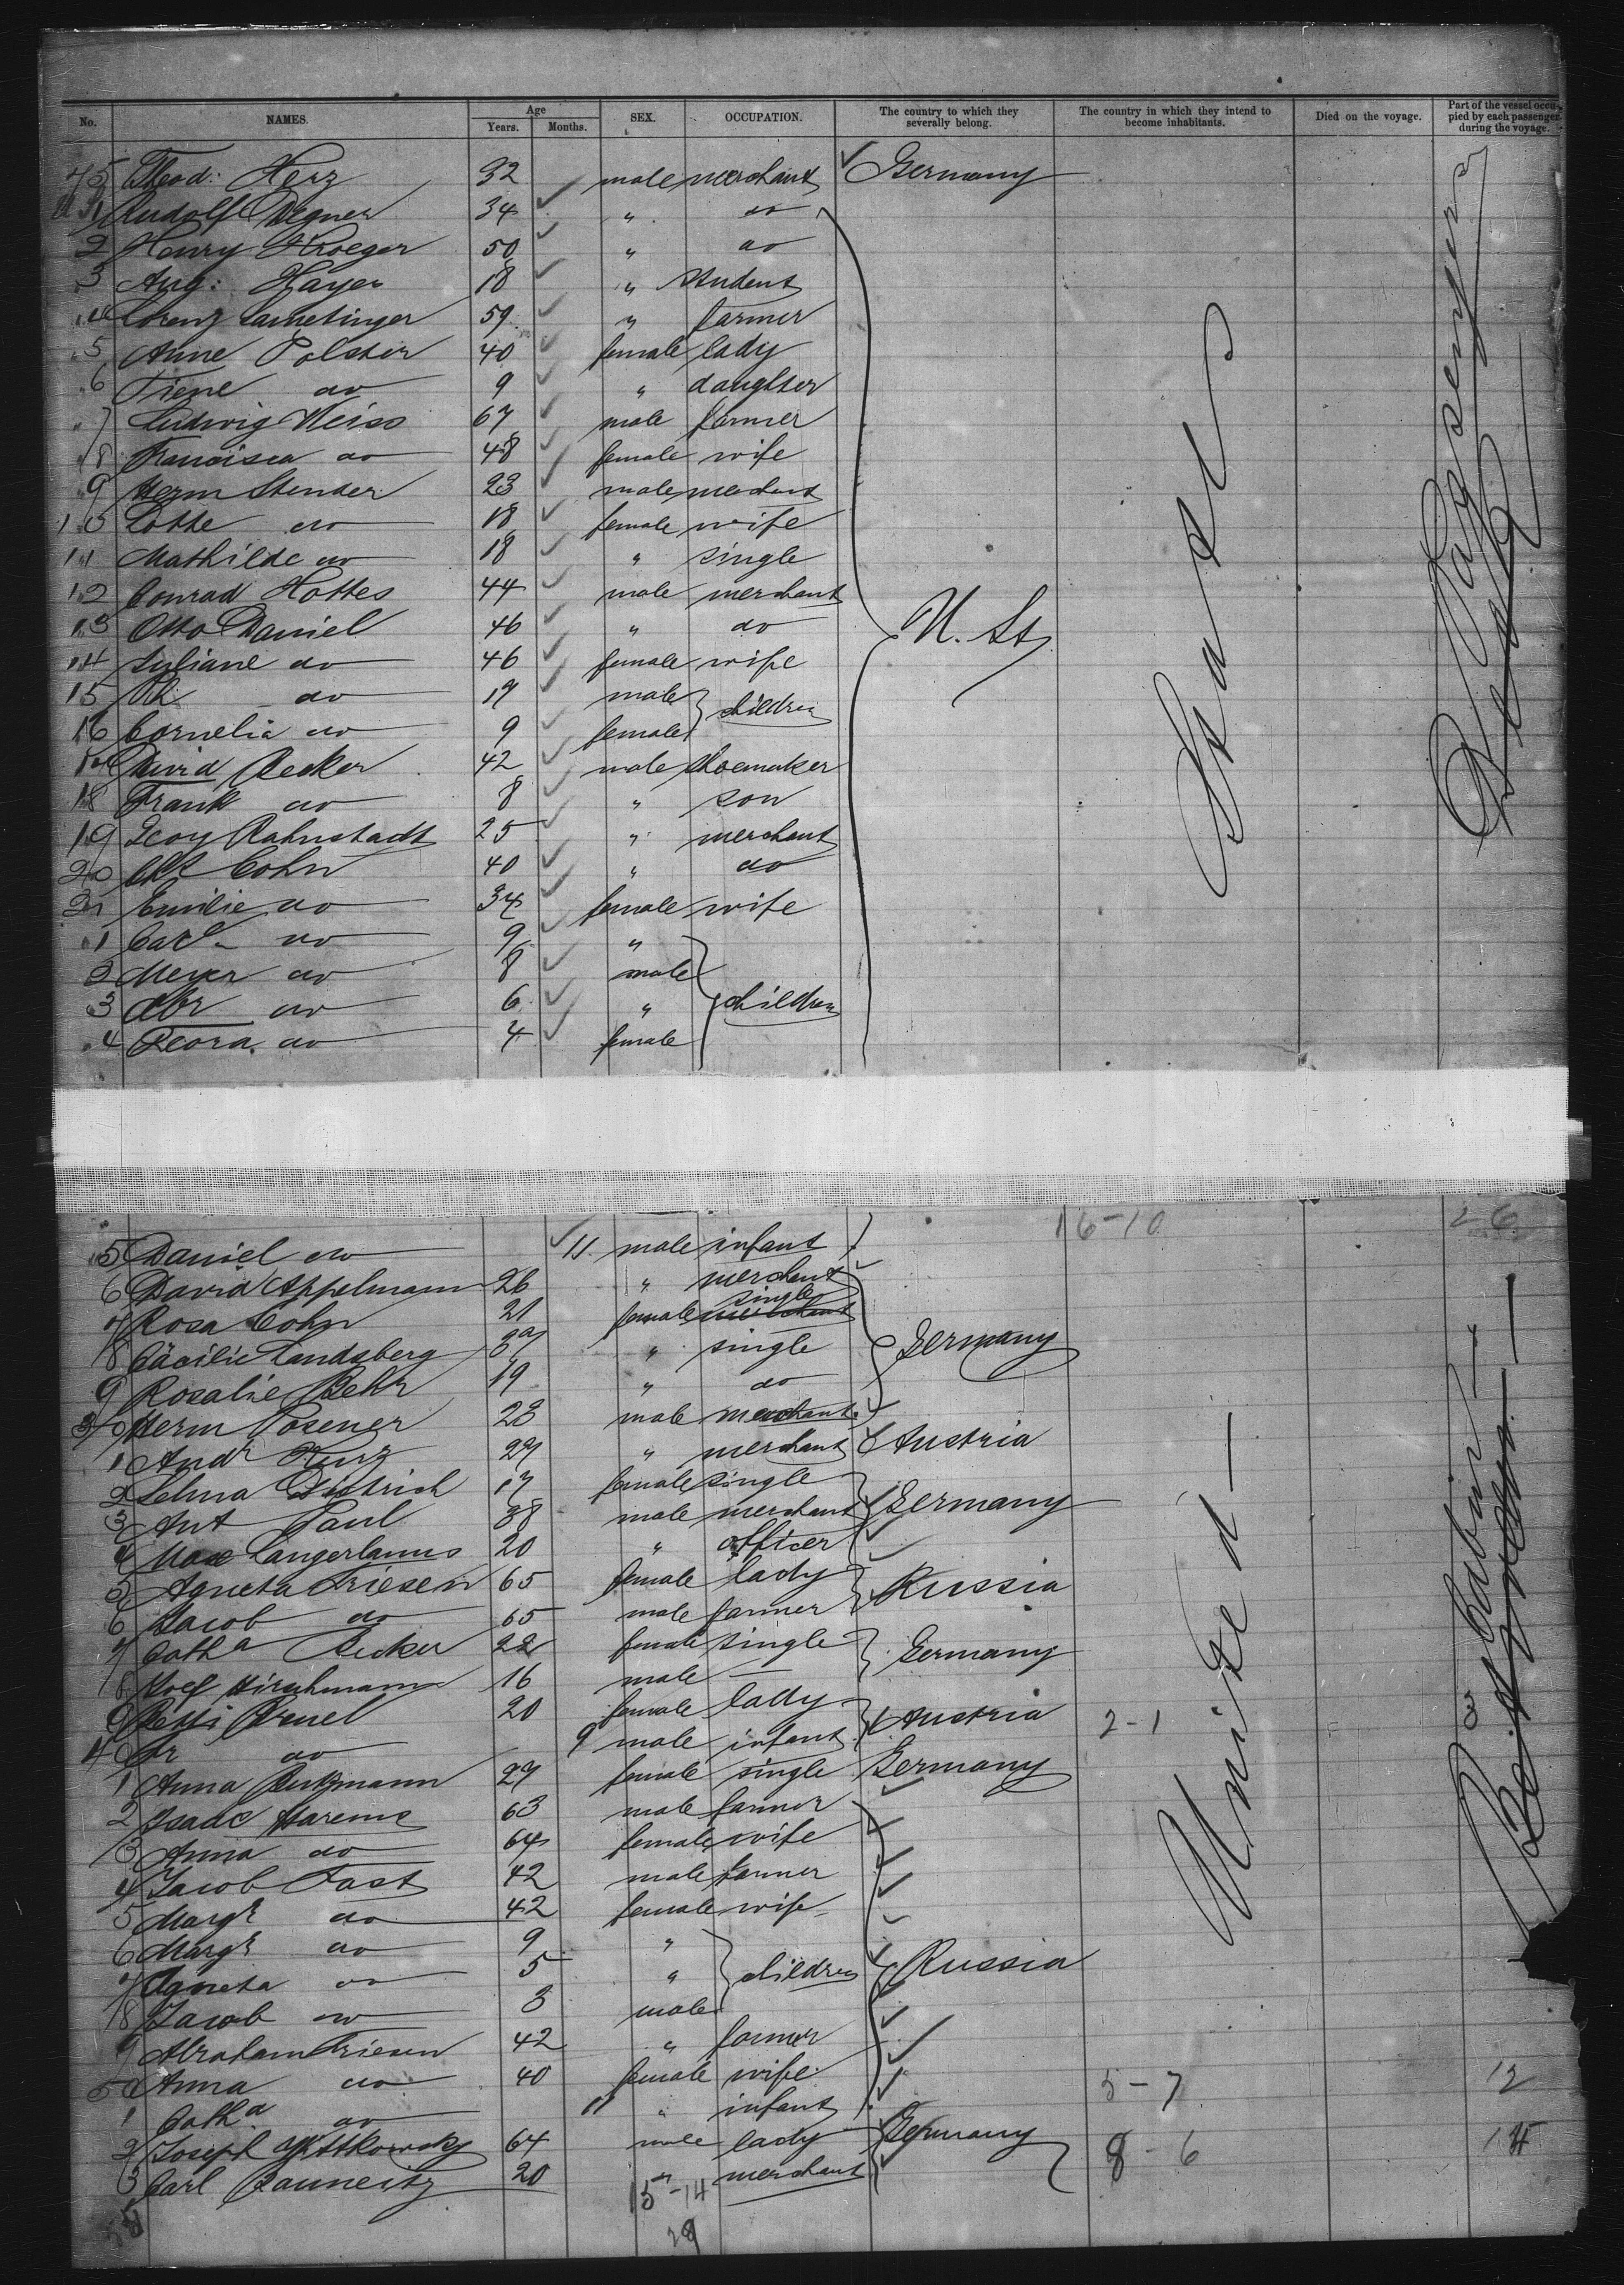 No. NAMES. Age Years. Months. SEX. OCCUPATION. The country to which they severally belong. The country in which they intend to become inhabitants. Died on the voyage. Part of the vessel occupied by each passenger during the voyage.
45 Theod: Herz 32 male merchant Germany
1 Rudolf Degner 34 " do
2 Henry Kroeger 50 " do
3 Aug: Hayer 18 " student
4 Lorenz 59 " farmer
5 Anne Polster 40 female lady
6 Irene do 9 " daughter
7 Ludwig Weiss 67 male farmer
8 Francisca do 48 female wife
9 Herm Stender 23 male merchant
10 Lotte do 18 female wife
11 Mathilde do 18 " single
12 Conrad Hottes 44 male merchant
13 Otto Daniel 46 " do
14 Juliane do 46 female wife U. St.
15 do 17 male
16 Cornelia do 9 female children
David Becker 42 male shoemaker
18 Frank do 8 " son
19 Leoy Rahnstadt 25 " merchant
20 Cohn 40 " do
21 Emilie do 34 female wife
1 do 9 "
2 Meyer do 8 male
3 Abr do 6 " children
4 do 4 female
States
Passengers
5 Daniel do 11 male infant 16-10 26
6 David Appelmann 26 " merchant
7 Rosa Cohn 21 female single
8 Cäcilie Landsberg 37 " single Germany
9 Rosalie Behr 19 " do
30 Herm Posener 23 male merchant
1 Andr Kurz 27 " merchant Austria
2 Selma Dietrich 17 female single
3 Ant Paul 38 male merchant Germany
4 Max 20 " officer
5 Agneta Friesen 65 female lady Russia
6 Jacob do 65 male farmer
7 Catha Becker 22 female single Germany
8 Hirschmann 16 male —
9 20 female lady Austria 2-1
40 do 9 male infant
1 Anna 27 female single Germany
2 Isaac Harems 63 male farmer
3 Anna do 64 female wife
4 Jacob Fast 42 male farmer
5 Margr do 42 female wife
6 Margr do 9 "
7 Agneta do 5 " children Russia
8 Jacob do 3 male
9 Abraham Friesen 42 " farmer
50 Anna do 40 female wife 5-7 12
1 Catha do 11 " infant
2 Joseph 64 male lady Germany 8-6 14
3 Carl 20 " merchant
15-14
29
United —